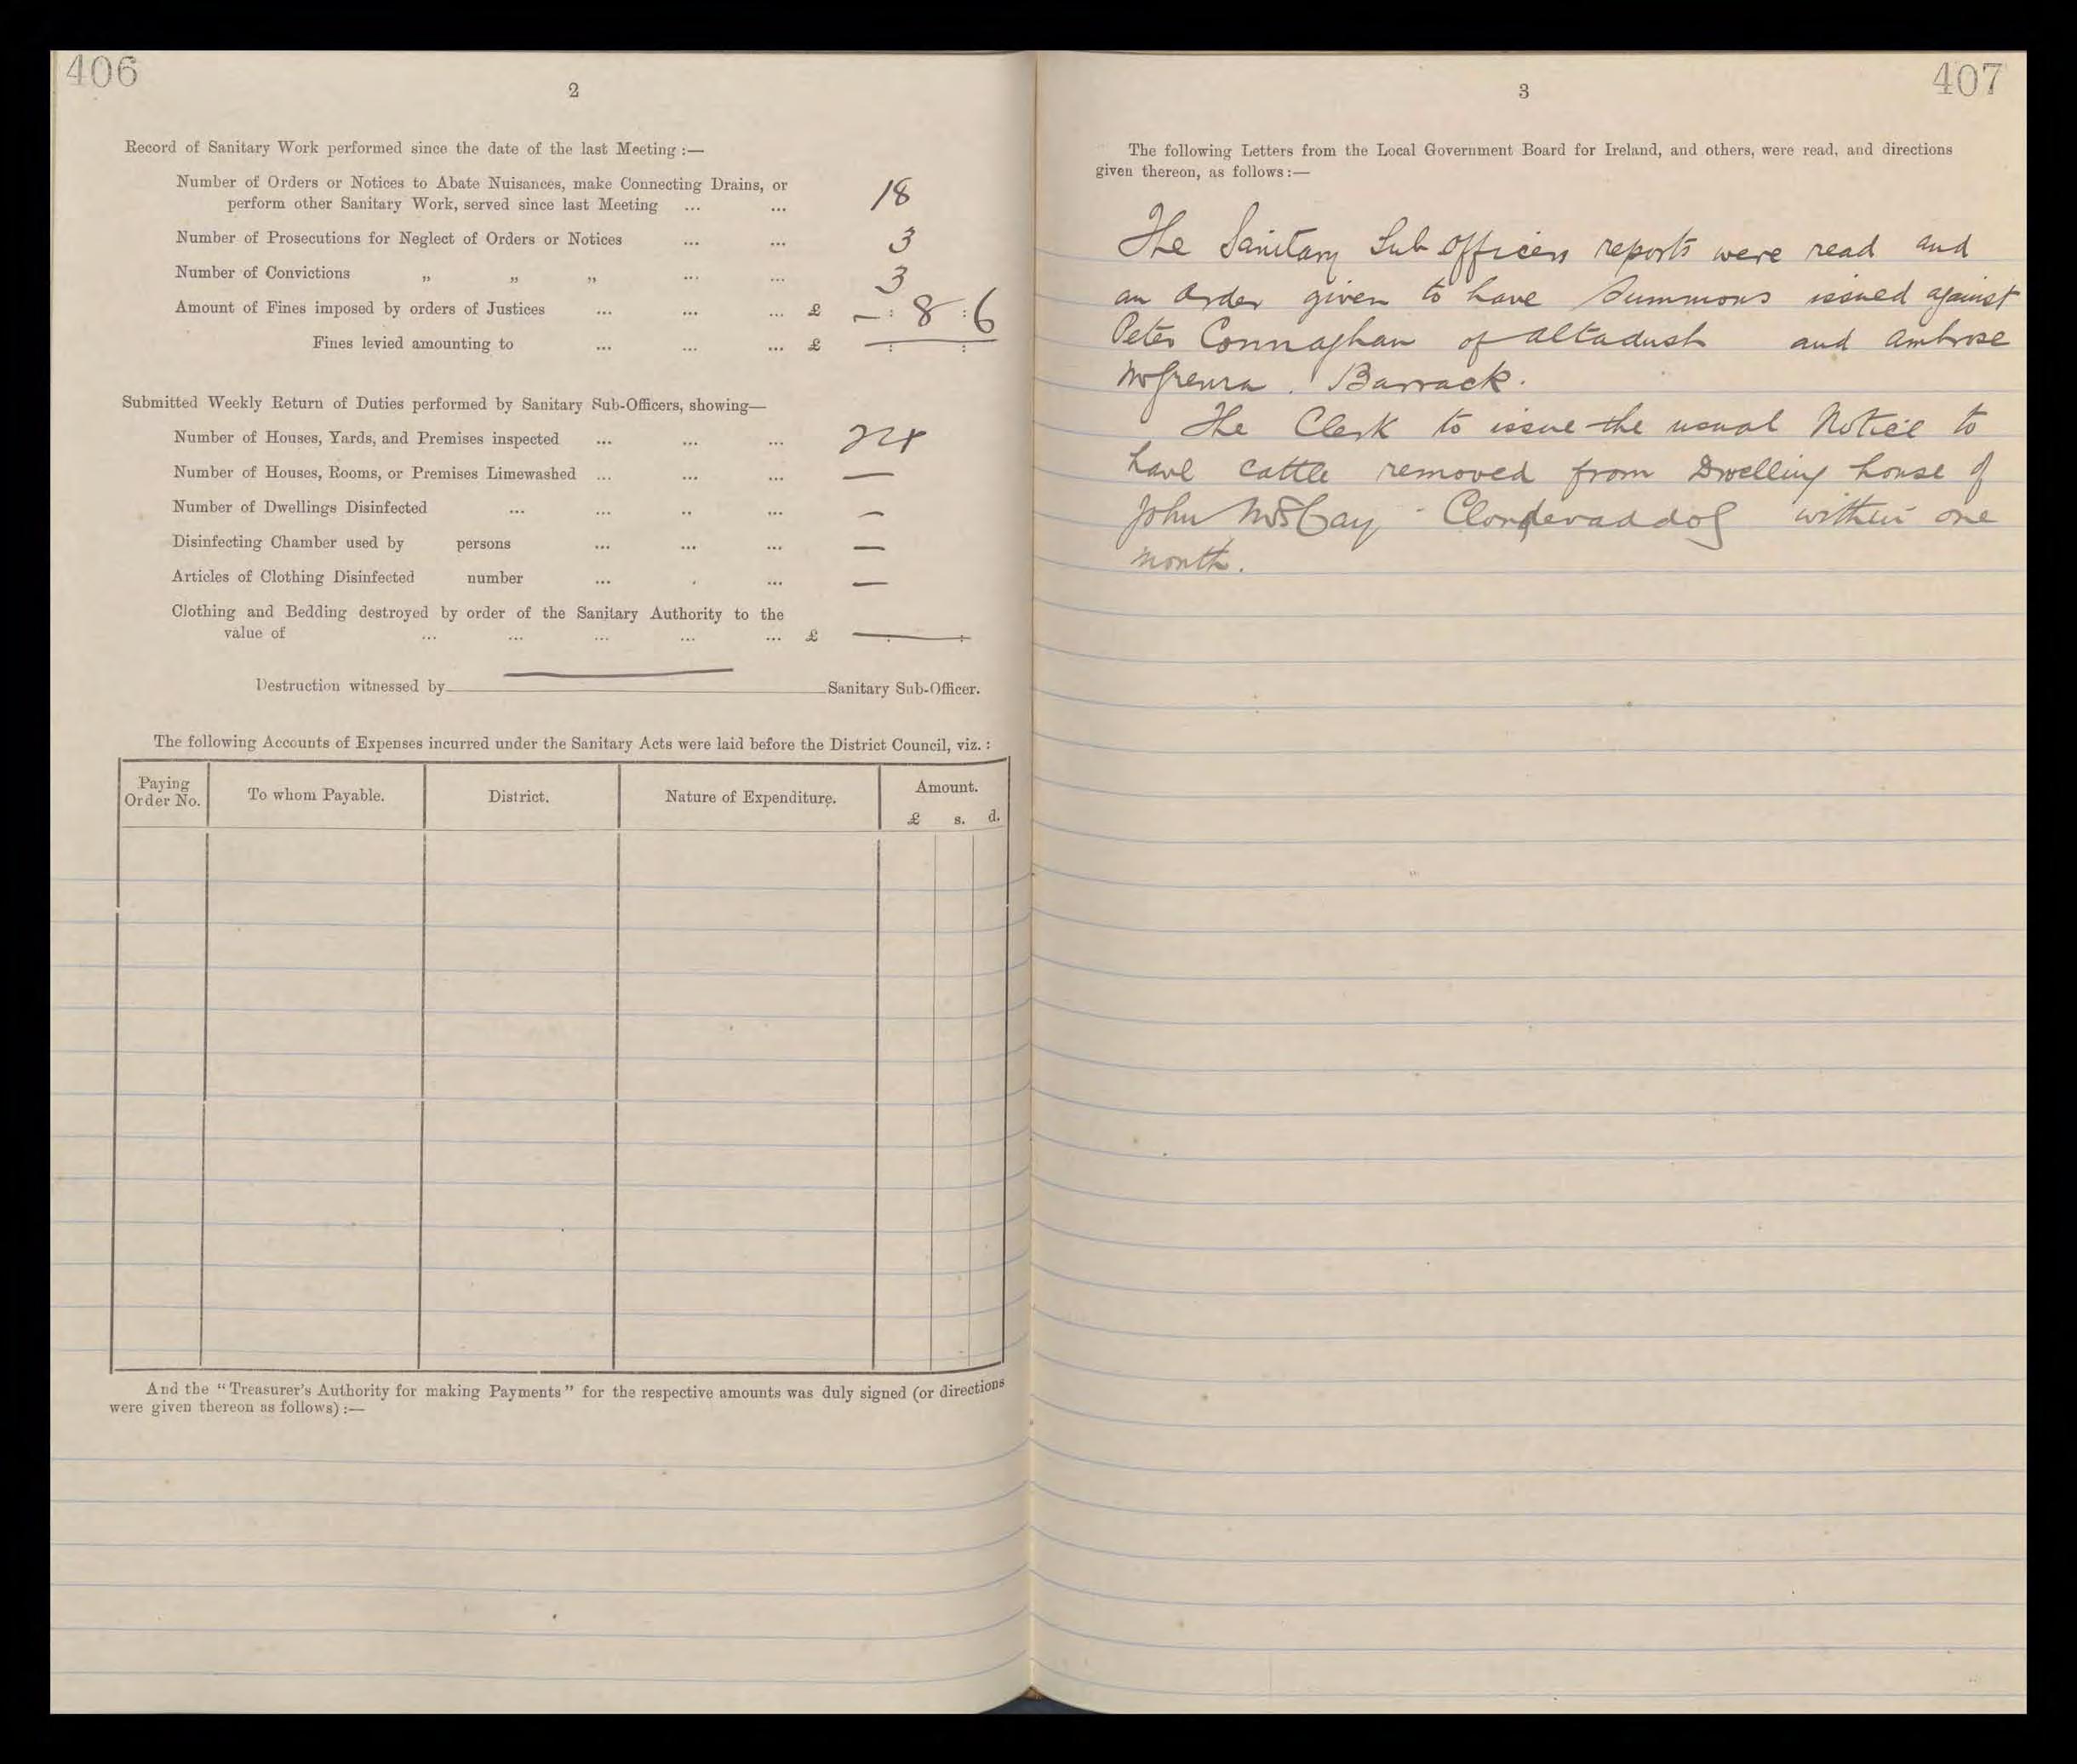 406
2
Record of Sanitary Work performed since the date of the last Meeting :—
Number of Orders or Notices to Abate Nuisances, make Connecting Drains, or
perform other Sanitary Work, served since last Meeting ... ... 18
Number of Prosecutions for Neglect of Orders or Notices ... ... 3
Number of Convictions „ „ „ ... ... 3
Amount of Fines imposed by orders of Justices ... ... ... £ — : 8 : 6
Fines levied amounting to ... ... ... £ — : :
Submitted Weekly Return of Duties performed by Sanitary Sub-Officers, showing—
Number of Houses, Yards, and Premises inspected ... ... ...
Number of Houses, Rooms, or Premises Limewashed ... ... ... —
Number of Dwellings Disinfected ... ... .. ... —
Disinfecting Chamber used by persons ... ... ... —
Articles of Clothing Disinfected number ... . ... —
Clothing and Bedding destroyed by order of the Sanitary Authority to the
value of ... ... ... ... ... £ — : :
Destruction witnessed by — Sanitary Sub-Officer.
The following Accounts of Expenses incurred under the Sanitary Acts were laid before the District Council, viz. :
Paying Order No. To whom Payable. District. Nature of Expenditure. Amount.
£ s. d.
And the "Treasurer's Authority for making Payments" for the respective amounts was duly signed (or directions
were given thereon as follows) :—
407
3
The following Letters from the Local Government Board for Ireland, and others, were read, and directions
given thereon, as follows :—
The Sanitary Sub Officers reports were read and
an order given to have Summons issued against
Peter Connaghan of Altadush and Ambrose
Barrack.
The Clerk to issue the usual Notice to
have cattle removed from Dwelling house of
John Clondevaddog within one
month.